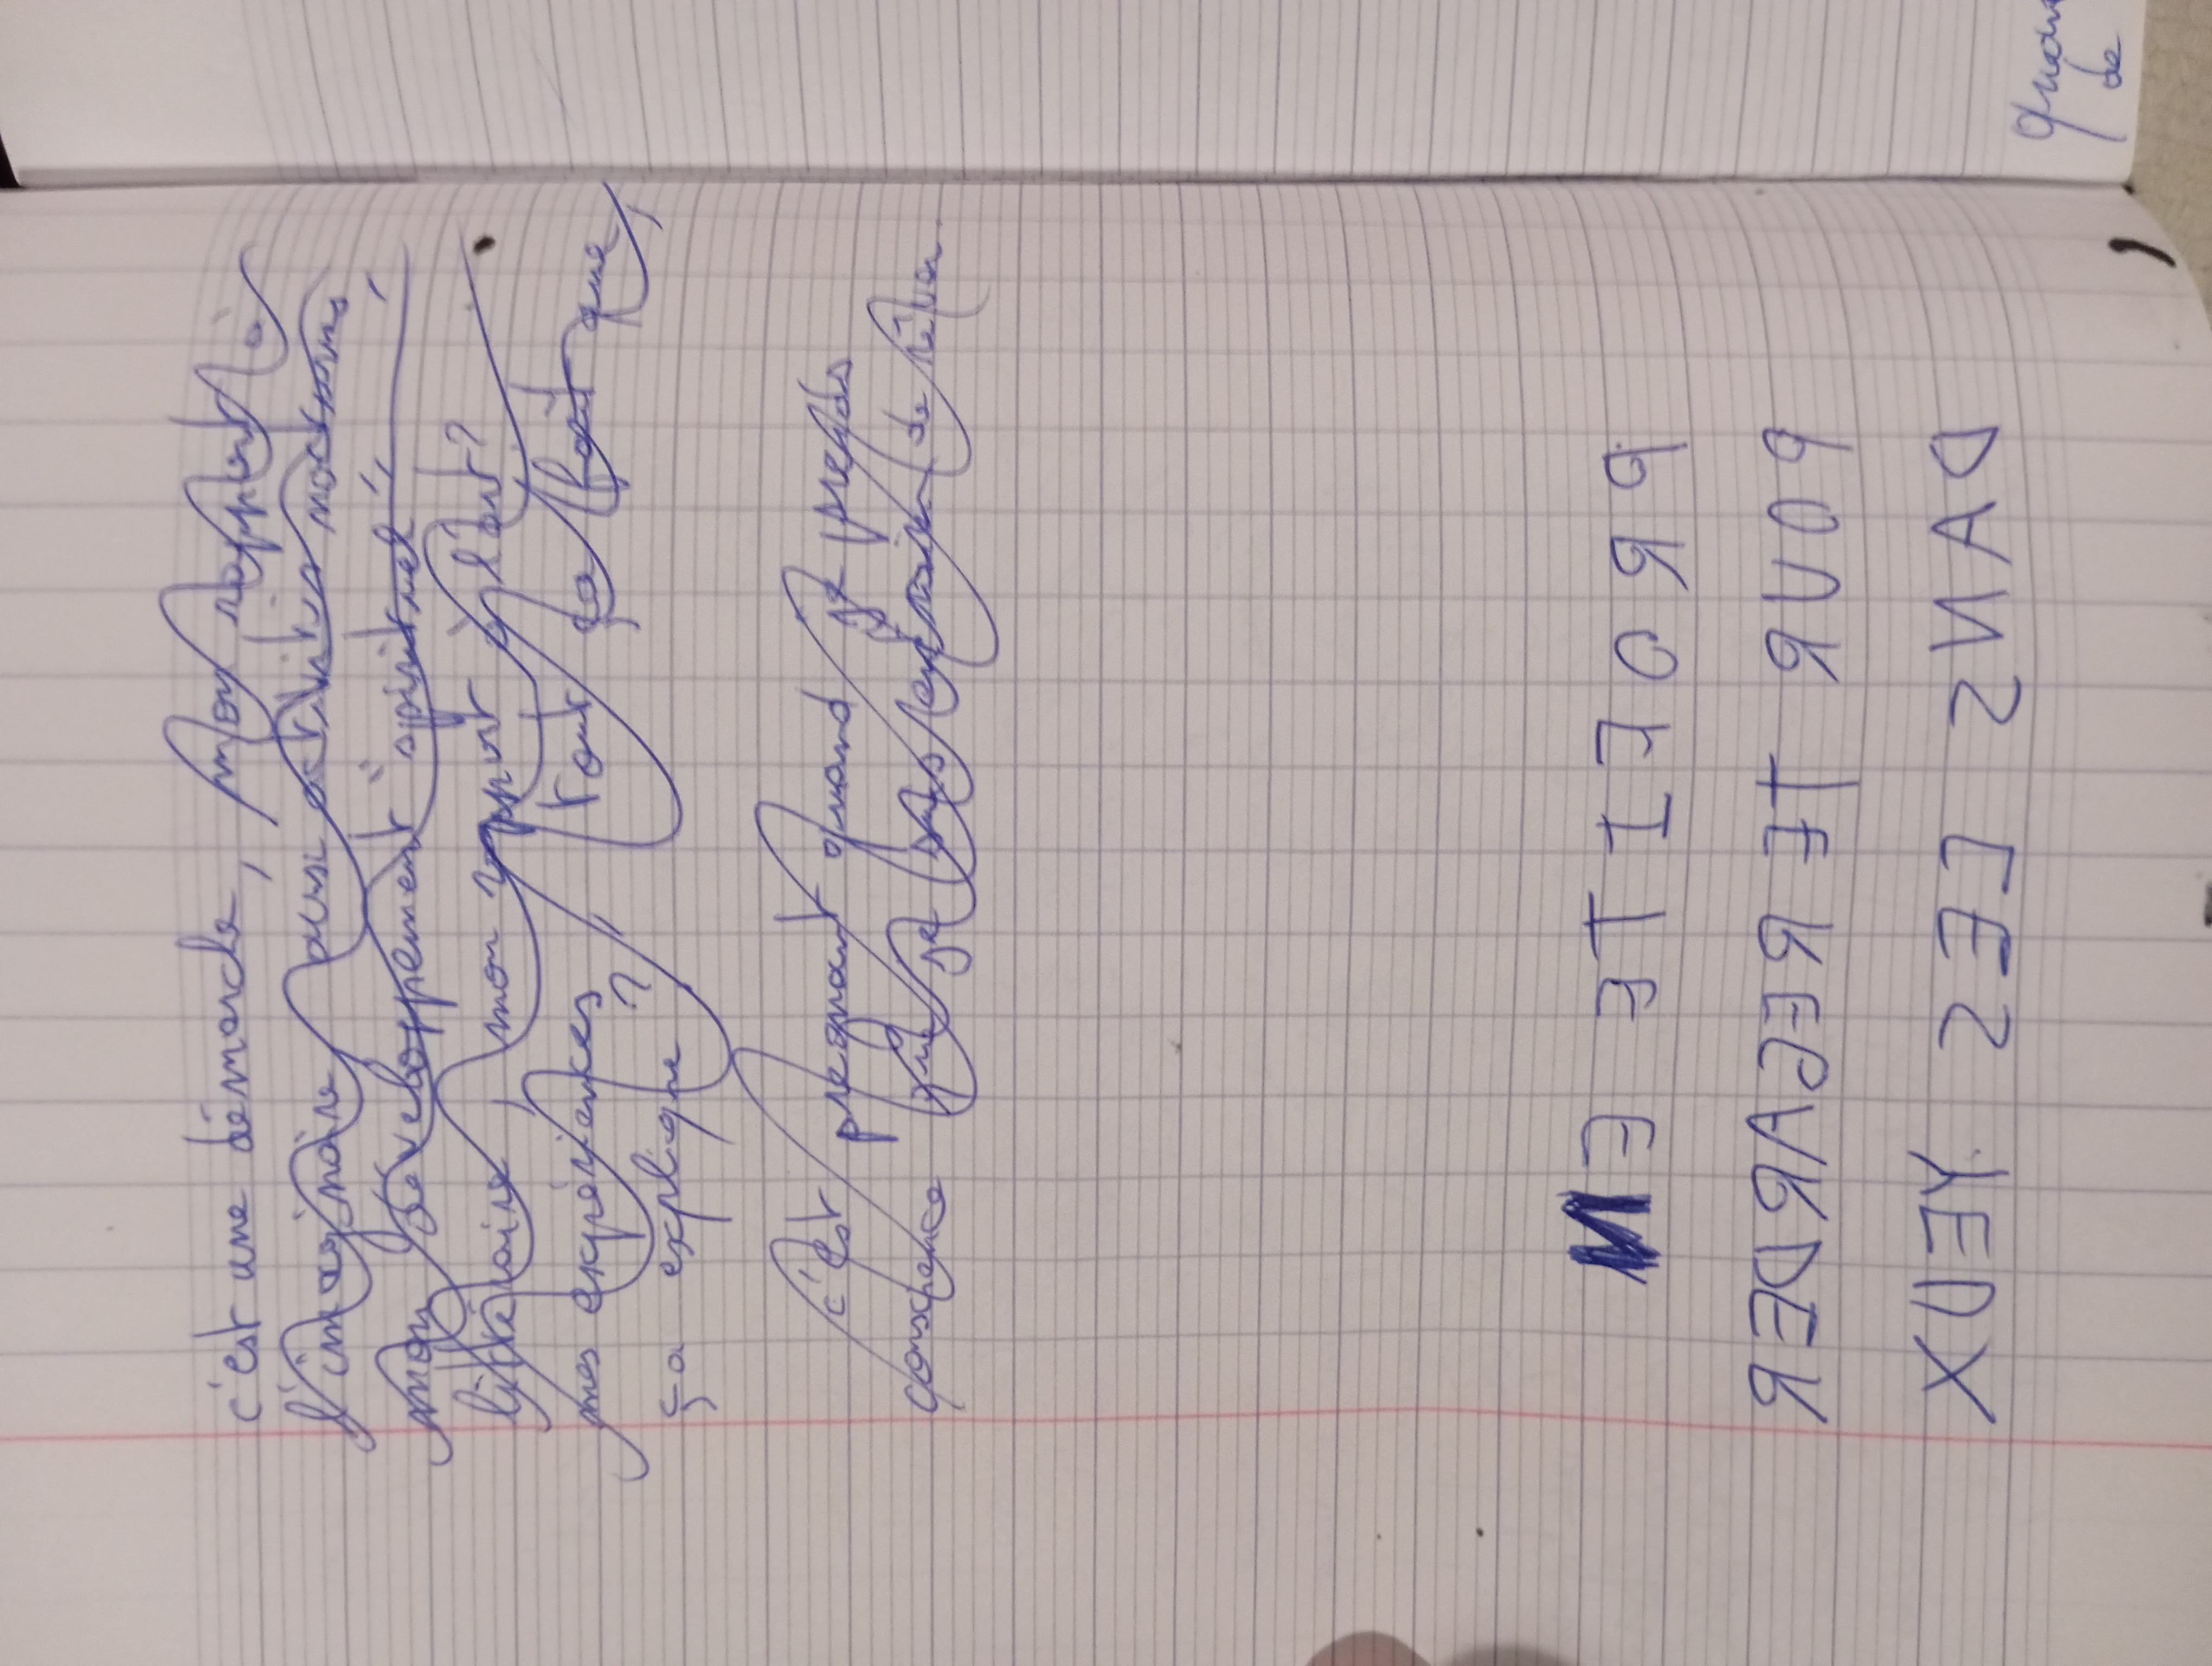 c'est une démarche, mon rapport à
l'imaginaire aussi activités nocturnes
mon développement "spirituel",
littéraire, mon rapport à l'art?
mes expériences, tout ça fait que,
ça explique?
c'est pregnant quand je prends
conscience que je suis en train de rêver.
PROFITE EN
POUR TE REGARDER
DANS LES YEUX
quan
de